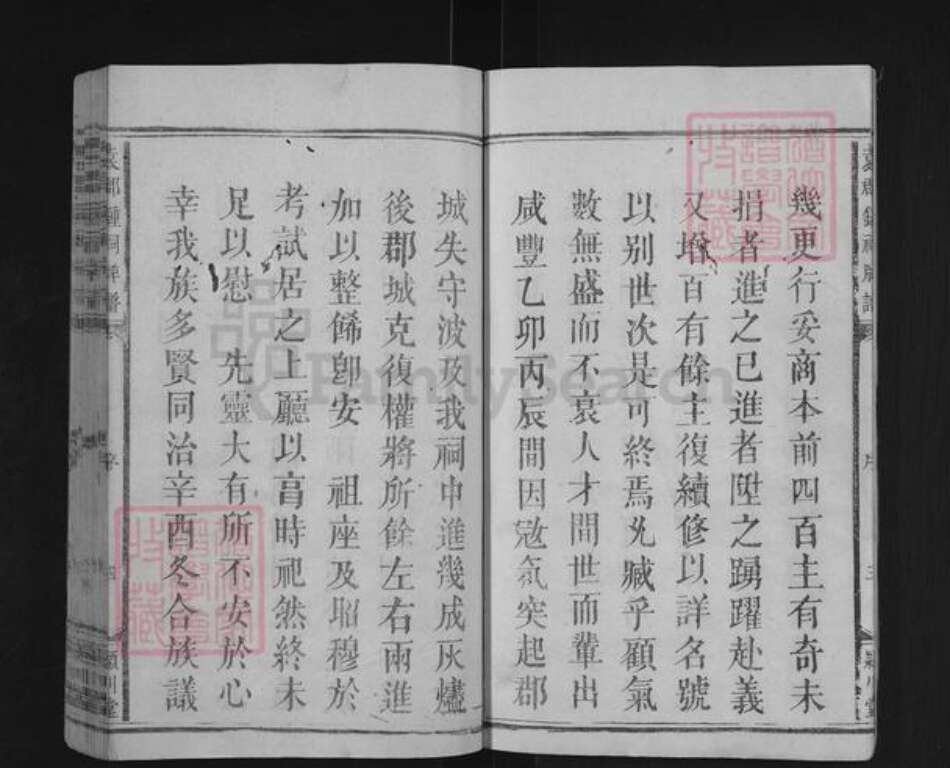 幾更行妥商本前四百主有奇未
捐者進之已進者陞之踴躍赴義
又增百有餘主復續修以詳名號
以别世次是可終焉允臧乎顧氣
數無盛而不衰人才間世而輩出
咸豐乙卯丙辰間因寇氛突起郡
城失守波及我祠中進幾成灰燼
後郡城克復權將所餘左右兩進
加以整餙卽安 祖座及昭穆於
考試居之上廳以亯時祀然終未
足以慰 先靈大有所不安於心
幸我族多賢同治辛酉冬合族議
袁郡鍾祠牌譜
序
四
潁川堂
FamilySearch